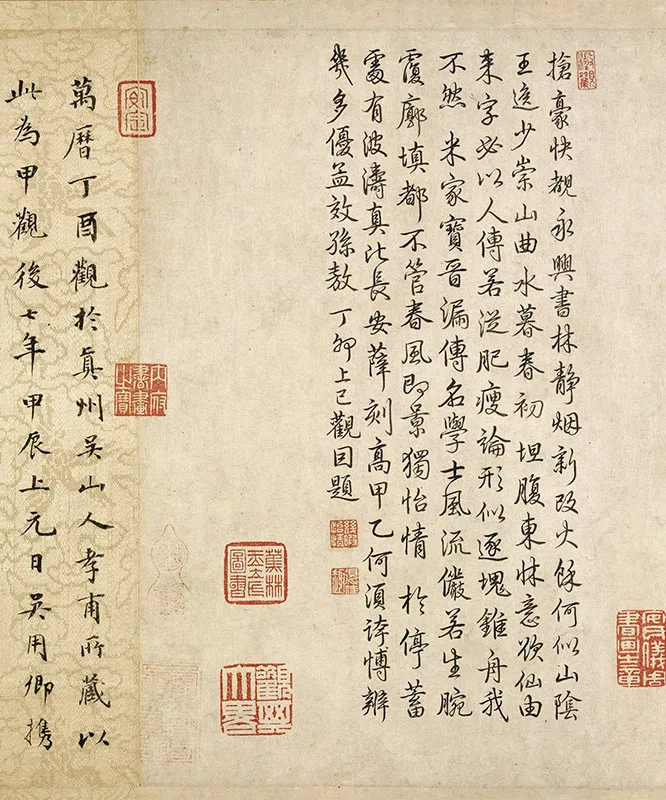 搶豪快覩永興書林靜烟新改火餘何似山陰
王逸少崇山曲水暮春初坦腹東牀意欲仙由
来字必以人傳若從肥瘦論形似逐塊錐舟我
不然米家寶晉漏傳名學士風流儼若生腕
覆廓填都不管春風即景獨怡情於停蓄
處有波濤真比長安薛刻高甲乙何須誇博辨
幾多優孟效孫敖丁卯上巳觀因題
安儀周書畫之章
蕉林玉立氏圖書
觀其大略
安定
萬曆丁酉觀於真州吳山人孝甫所藏以
此為甲觀後七年甲辰上元日吳用卿攜